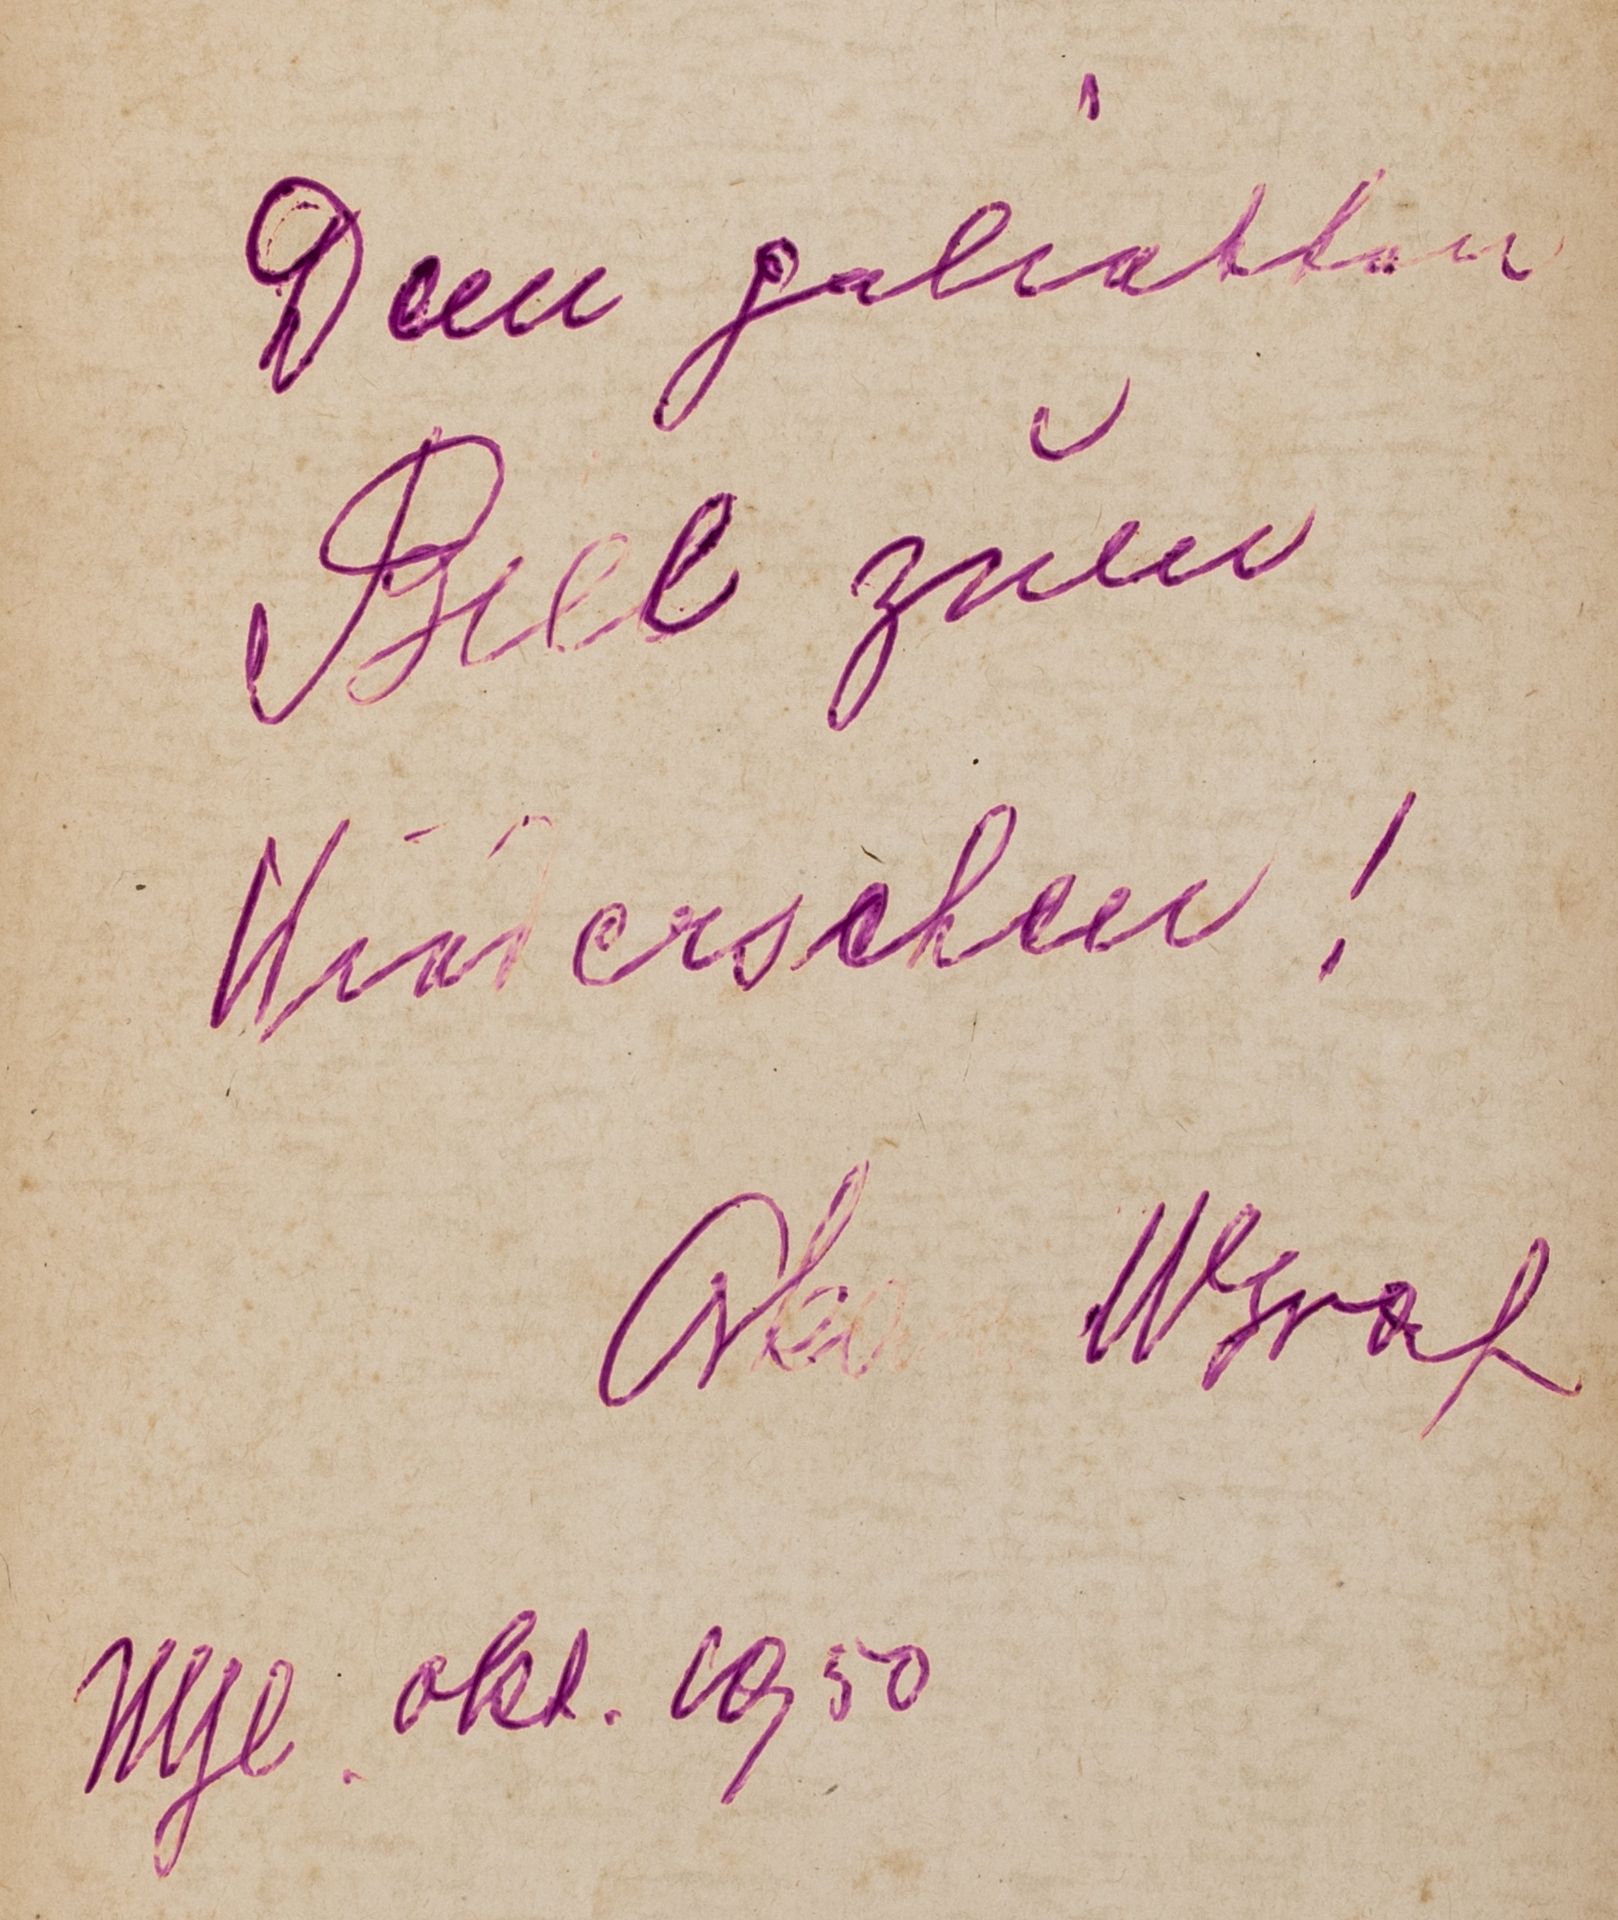 Dem geliebten
Bill zum
Wiedersehen!
Oskar M Graf
NY. okt. 1950